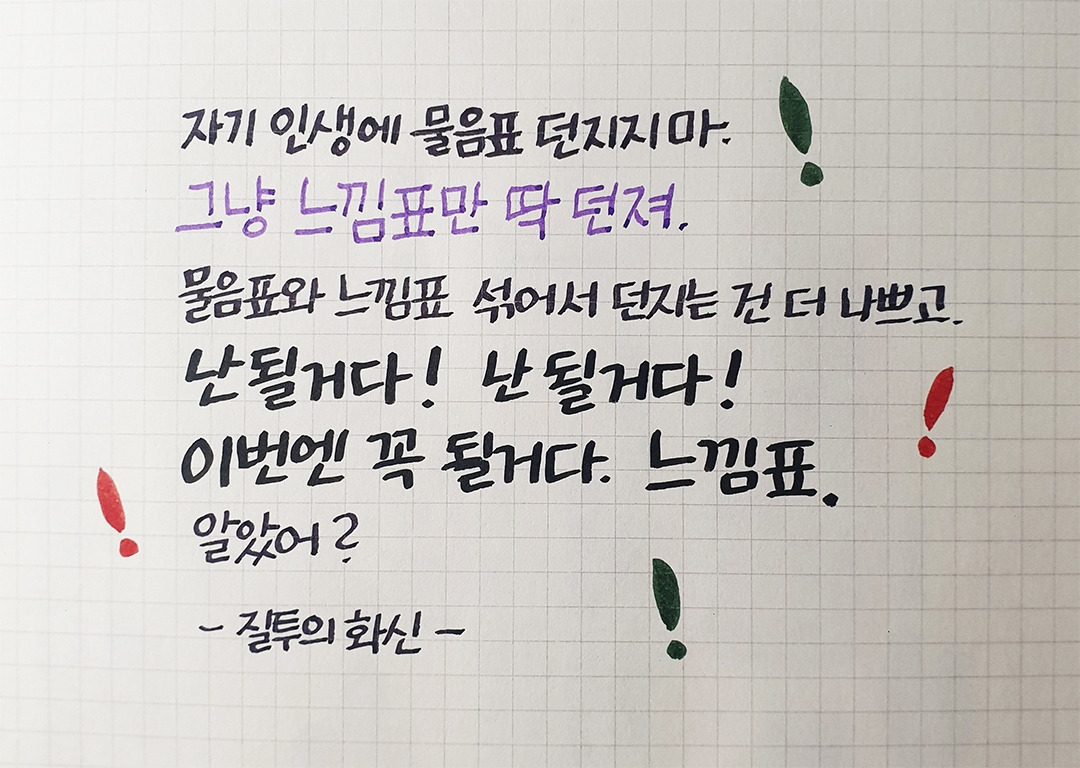 자기 인생에 물음표 던지지 마.
그냥 느낌표만 딱 던져.
물음표와 느낌표 섞어서 던지는 건 더 나쁘고.
난 될거다! 난 될거다!
이번엔 꼭 될거다. 느낌표.
알았어?
- 질투의 화신 -